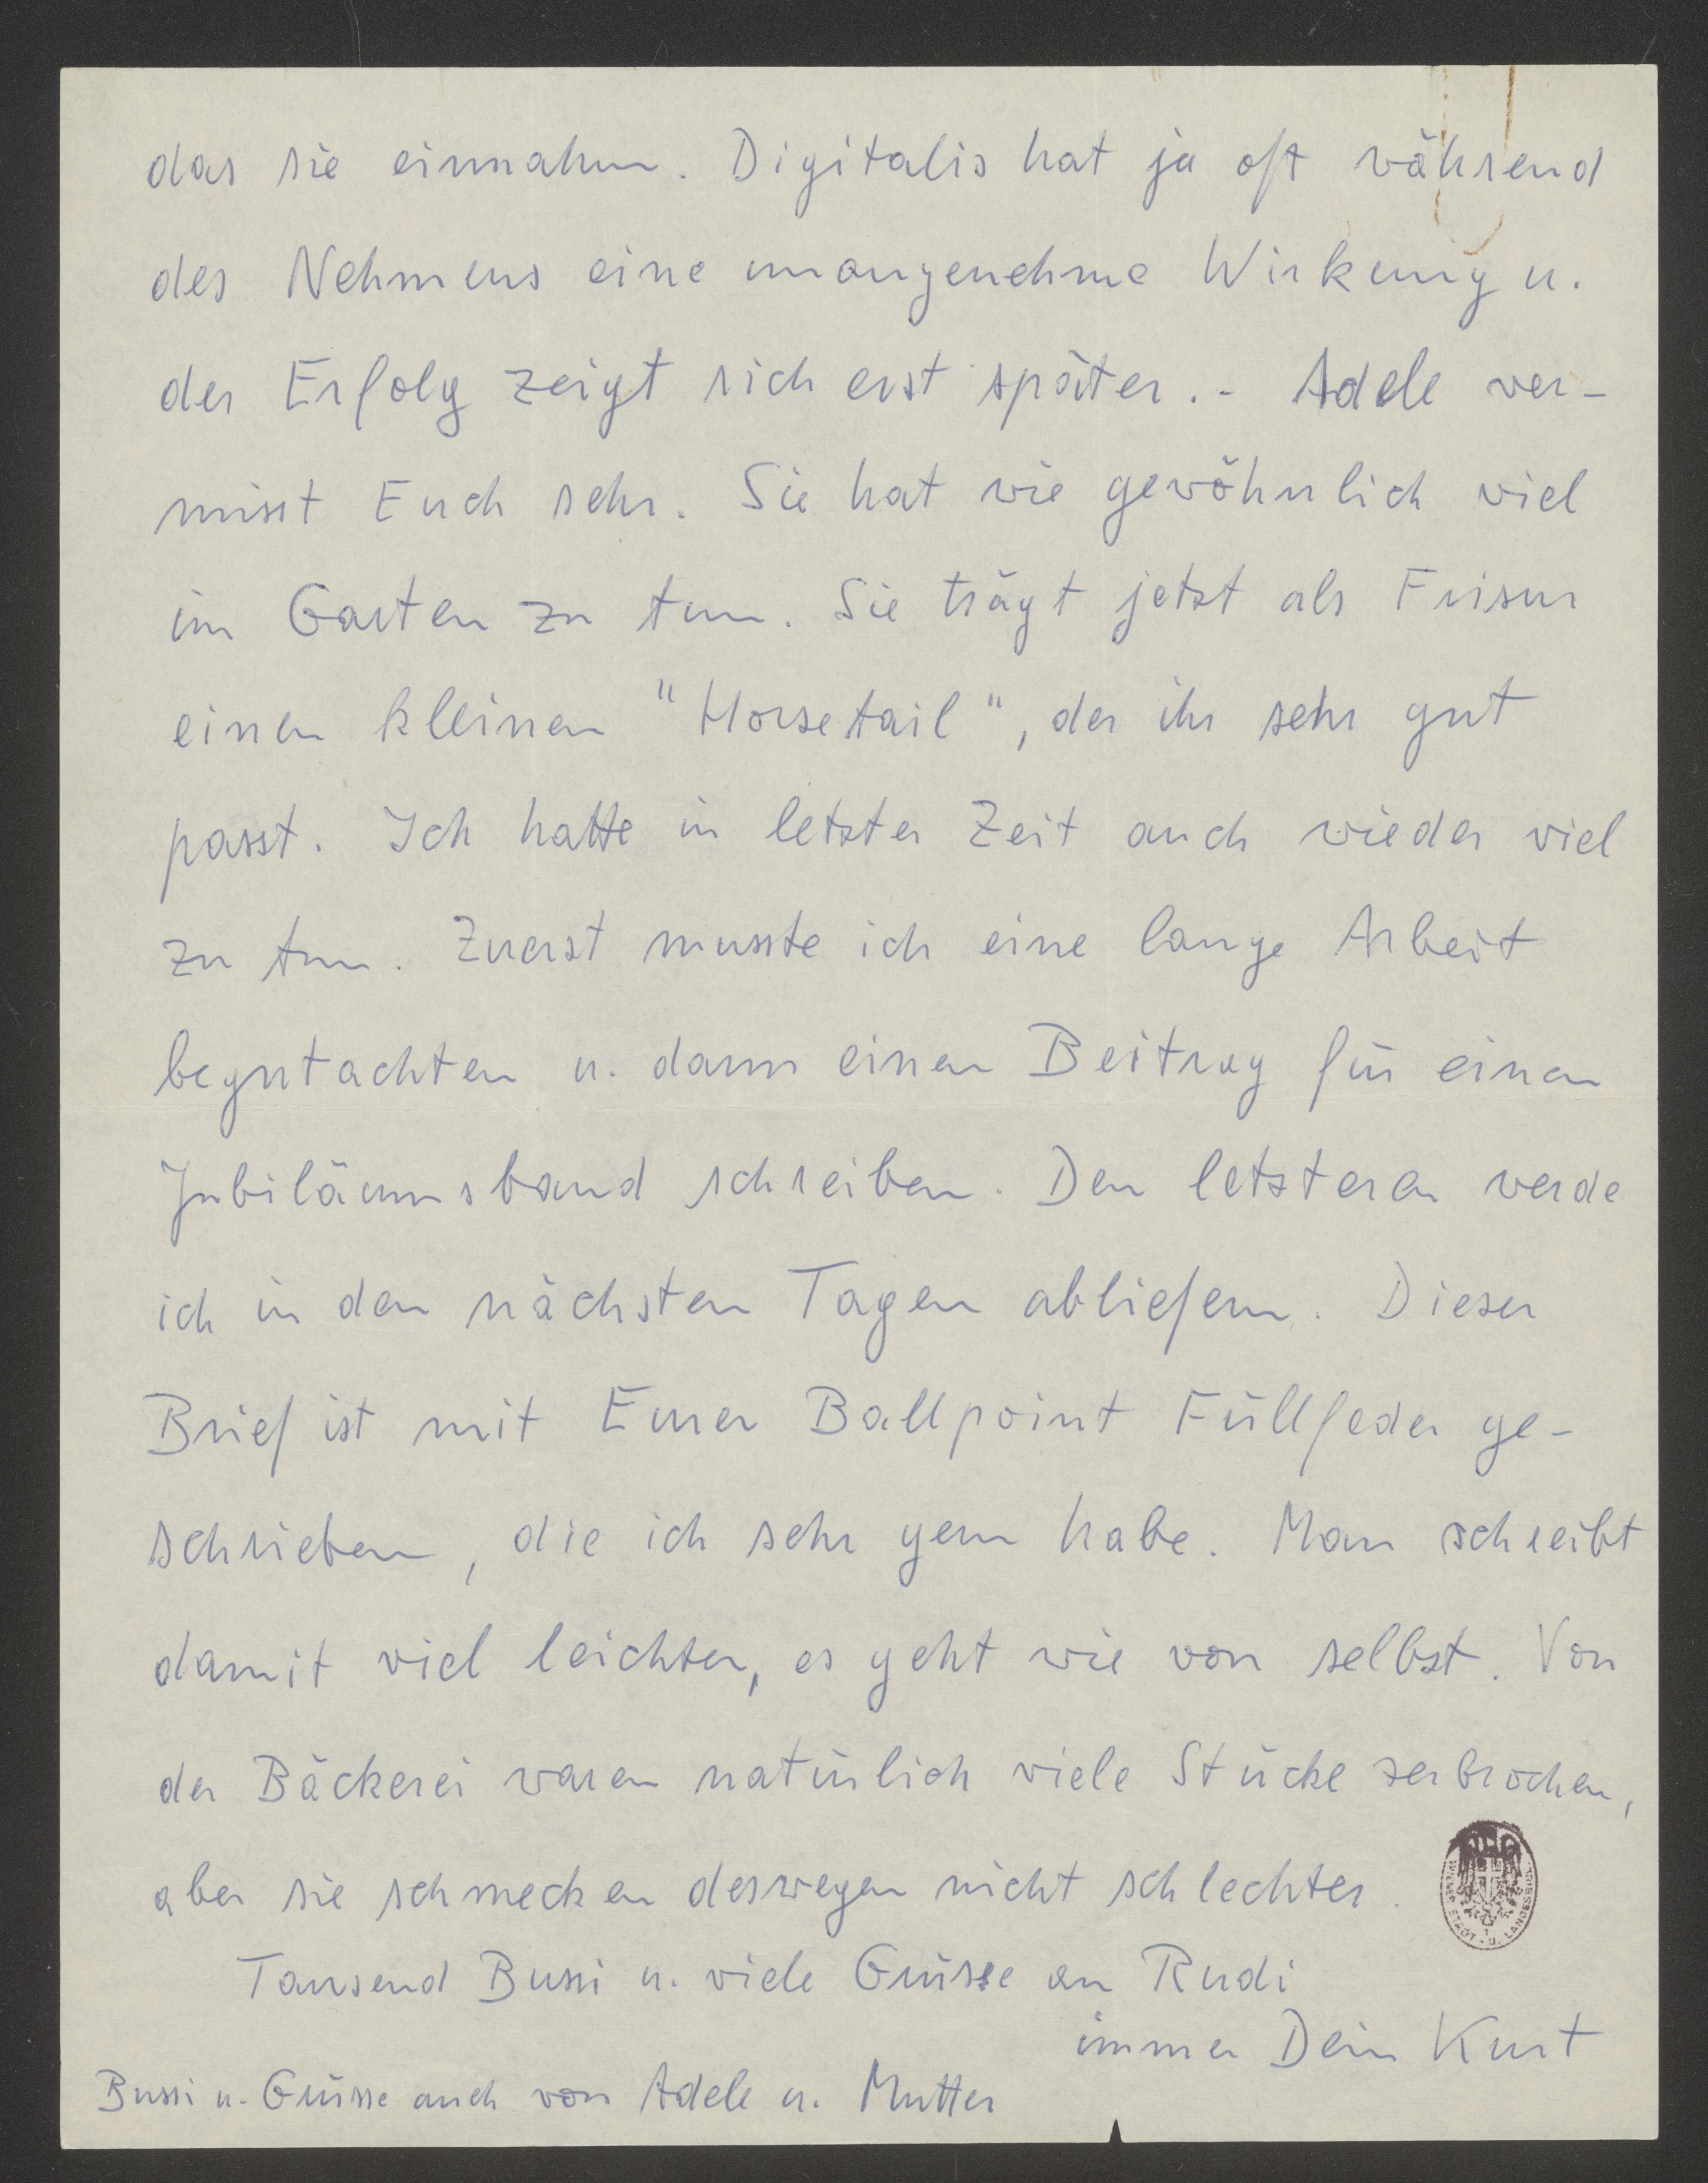 das sie einnahm. Digitalis hat ja oft während
des Nehmens eine unangenehme Wirkung u.
der Erfolg zeigt sich erst später. - Adele ver-
misst Euch sehr. Sie hat wie gewöhnlich viel
im Garten zu tun. Sie trägt jetzt als Frisur
einen kleinen "Horsetail", der ihr sehr gut
passt. Ich hatte in letzter Zeit auch wieder viel
zu tun. Zuerst musste ich eine lange Arbeit
begutachten u. dann einen Beitrag für einen
Jubiläumsband schreiben. Den letzteren werde
ich in den nächsten Tagen abliefern. Dieser
Brief ist mit Eurer Ballpoint Füllfeder ge-
schrieben, die ich sehr gern habe. Man schreibt
damit viel leichter, es geht wie von selbst. Von
der Bäckerei waren natürlich viele Stücke zerbrochen,
aber sie schmecken deswegen nicht schlechter.
Tausend Bussi u. viele Grüsse an Rudi
immer Dein Kurt
Bussi u. Grüsse auch von Adele u. Mutter
STADT- U. LANDESBIBL